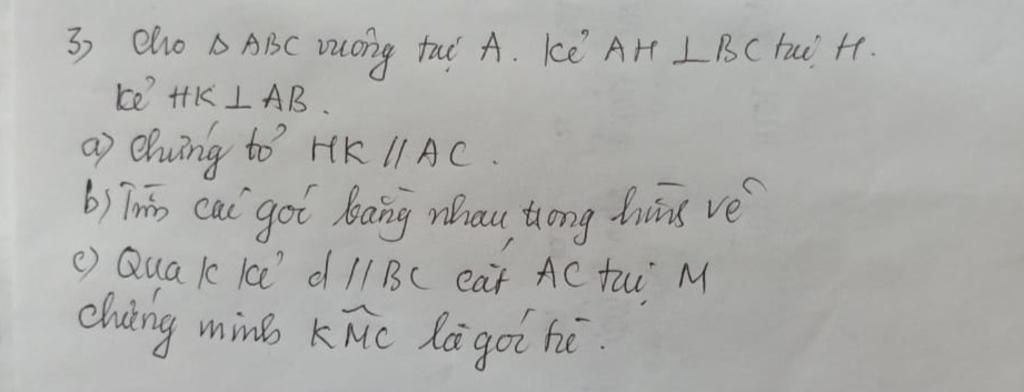 3) Cho Δ ABC vuông tại A. Kẻ AH ⊥ BC tại H.
Kẻ HK ⊥ AB.
a) Chứng tỏ HK // AC.
b) Tìm các góc bằng nhau trong hình vẽ
c) Qua K kẻ d // BC cắt AC tại M
chứng minh \widehat{KMC} là góc tù.